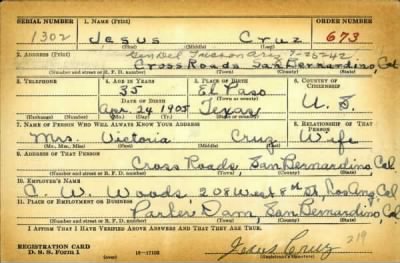 SERIAL NUMBER 1. NAME (Print) ORDER NUMBER
1302 Jesus Cruz 673
(First) (Middle) (Last)
2. ADDRESS (Print)
Gen Del Tucson Ariz 7-25-42
Cross Roads San Bernardino, Cal
(Number and street or R. F. D. number) (Town) (County) (State)
3. TELEPHONE 4. AGE IN YEARS 5. PLACE OF BIRTH 6. COUNTRY OF CITIZENSHIP
35 El Paso
DATE OF BIRTH (Town or county) U. S.
Apr. 24 1905 Texas
(Exchange) (Number) (Mo.) (Day) (Yr.) (State or country)
7. NAME OF PERSON WHO WILL ALWAYS KNOW YOUR ADDRESS 8. RELATIONSHIP OF THAT PERSON
Mrs. Victoria Cruz Wife
(Mr., Mrs., Miss) (First) (Middle) (Last)
9. ADDRESS OF THAT PERSON
Cross Roads, San Bernardino, Cal
(Number and street or R. F. D. number) (Town) (County) (State)
10. EMPLOYER'S NAME
C. W. Woods, 208 West 8th St, Los Ang, Cal
11. PLACE OF EMPLOYMENT OR BUSINESS
Parker Dam, San Bernardino, Cal
(Number and street or R. F. D. number) (Town) (County) (State)
I AFFIRM THAT I HAVE VERIFIED ABOVE ANSWERS AND THAT THEY ARE TRUE.
REGISTRATION CARD
D. S. S. Form 1 16-17105 Jesus Cruz 219
(Registrant's signature)